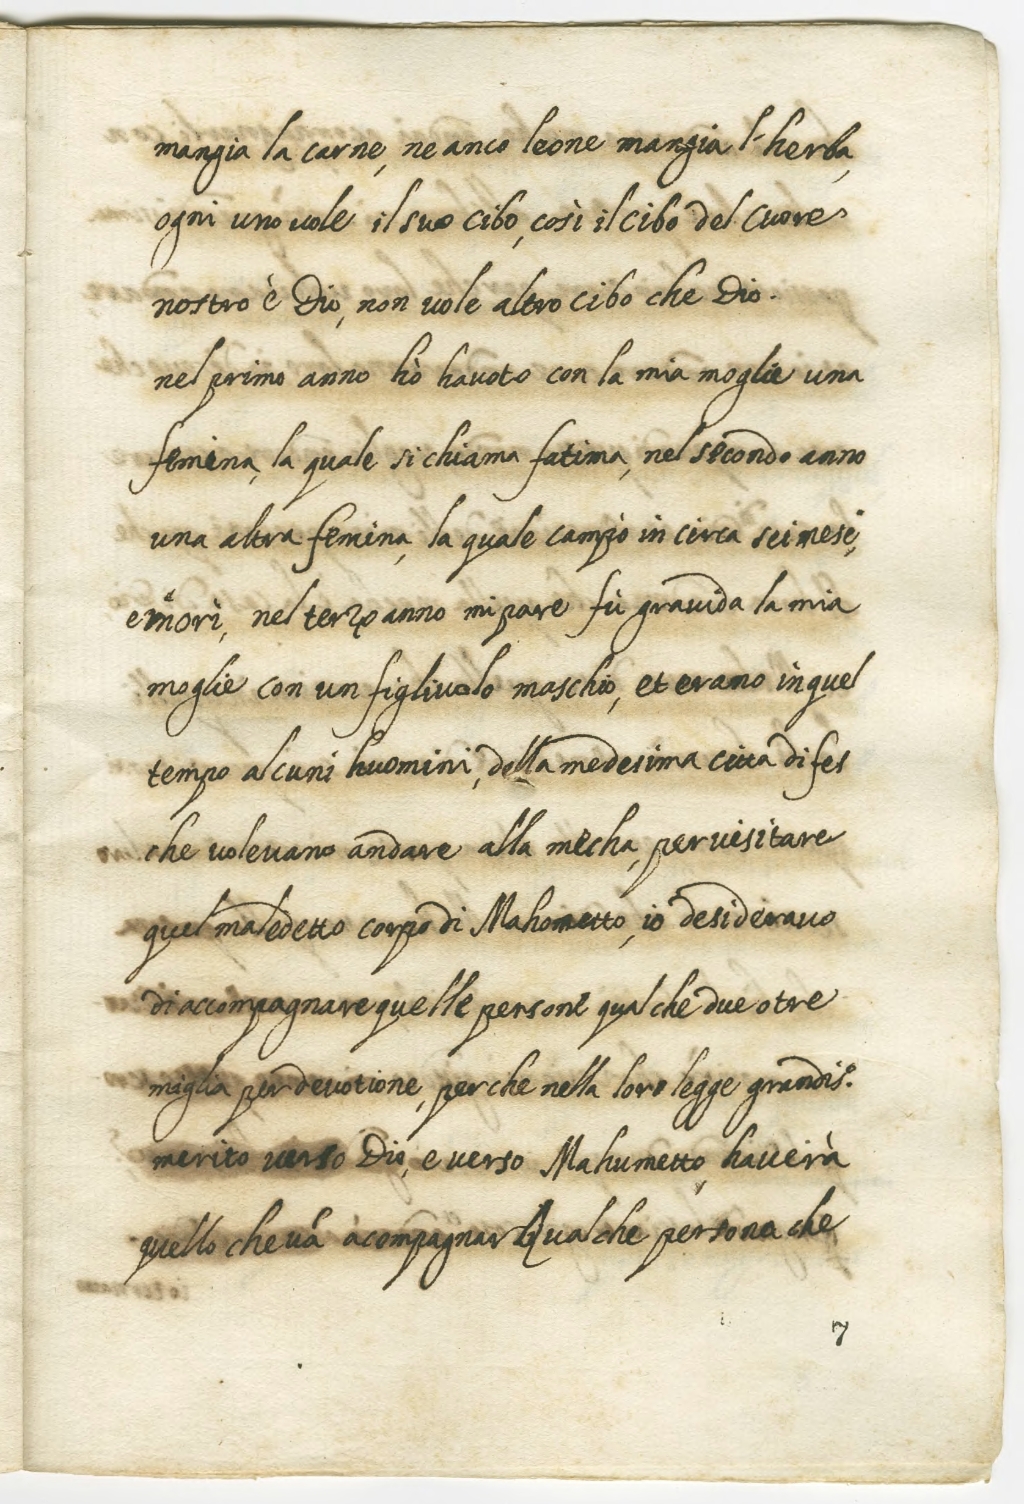 mangia la carne, ne anco leone mangia l'herba,
ogni uno vole il suo cibo, così il cibo del cuore
nostro è Dio, non vole altro cibo che Dio.
nel primo anno hò hauoto con la mia moglie una
femina, la quale si chiama fatima, nel secondo anno
una altra femina, la quale campò in circa sei mese,
e morì, nel terzo anno mi pare fù grauida la mia
moglie con un figliuolo maschio, et erano in quel
tempo alcuni huomini, della medesima citta di fes
che volevano andare alla mecha, per uisitare
quel maledetto corpo di Mahometto, io desiderauo
di accompagnare quelle persone qualche due o tre
miglia per devotione, perche nella loro legge grandis.o
merito verso Dio, e verso Mahumetto, hauerà
quello che uà acompagnar qualche persona che
7